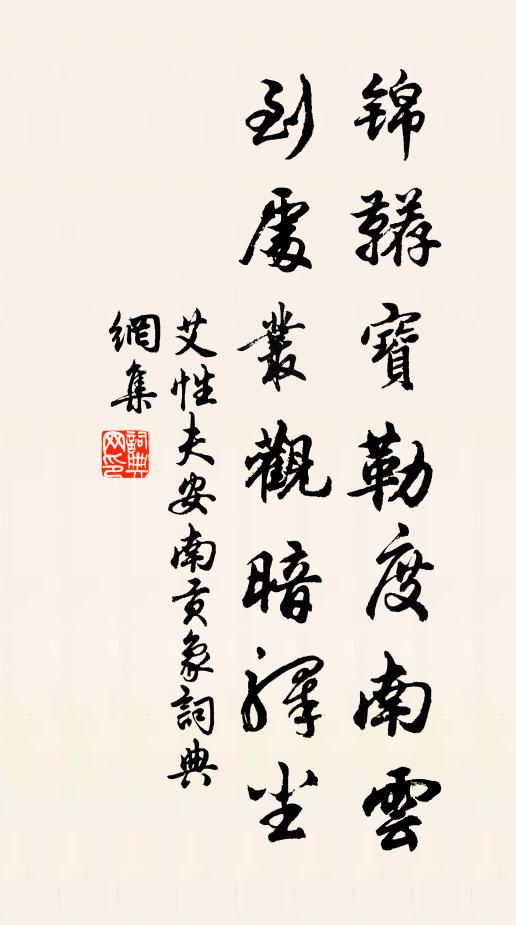 錦韉寶勒度南雲
到處叢觀暗驛塵
艾性夫安南貢象詞典
網集
詞典
网印